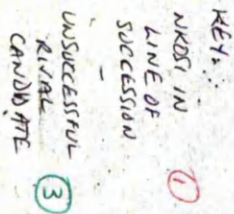 KEY:
NKOSI IN
LINE OF
SUCCESSION ①
-
UNSUCCESSFUL
RIVAL
CANDIDATE ③